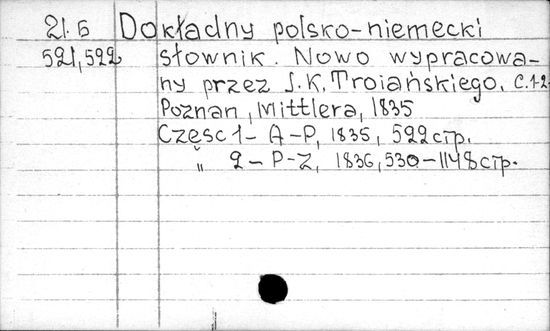 21.6 Dokładny polsko-niemecki
521,522 słownik. Nowo wypracowa-
ny przez J.K. Troiańskiego. C.1-2.
Poznan, Mittlera, 1835
Częsc 1 - A-P, 1835, 522 стр.
" 2 - P-Z, 1836, 530-1148 стр.